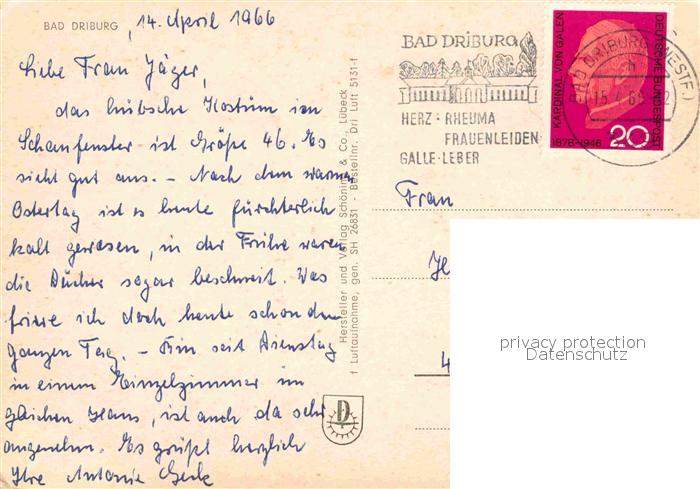 BAD DRIBURG
, 14. April 1966
Liebe Frau Jäger,
das hübsche Kostüm im
Schaufenster ist Größe 46. Es
sieht gut aus. – Nach dem warmen
Ostertag ist es heute fürchterlich
kalt gewesen, in der Frühe waren
die Dächer sogar beschneit. Was
friere ich doch heute schon den
ganzen Tag. – Bin seit Dienstag
in einem Einzelzimmer im
gleichen Haus, ist auch da sehr
angenehm. Es grüßt herzlich
Ihre Antonie
Hersteller und Verlag Schöning & Co., Lübeck
† Luftaufnahme, gen. SH 26831 - Bestellnr. Dri Luft 5131-f
D
BAD DRIBURG
HERZ · RHEUMA
FRAUENLEIDEN
GALLE · LEBER
BAD DRIBURG
KARDINAL VON GALEN
DEUTSCHE BUNDESPOST
1878-1946
20
Frau
4
privacy protection
Datenschutz